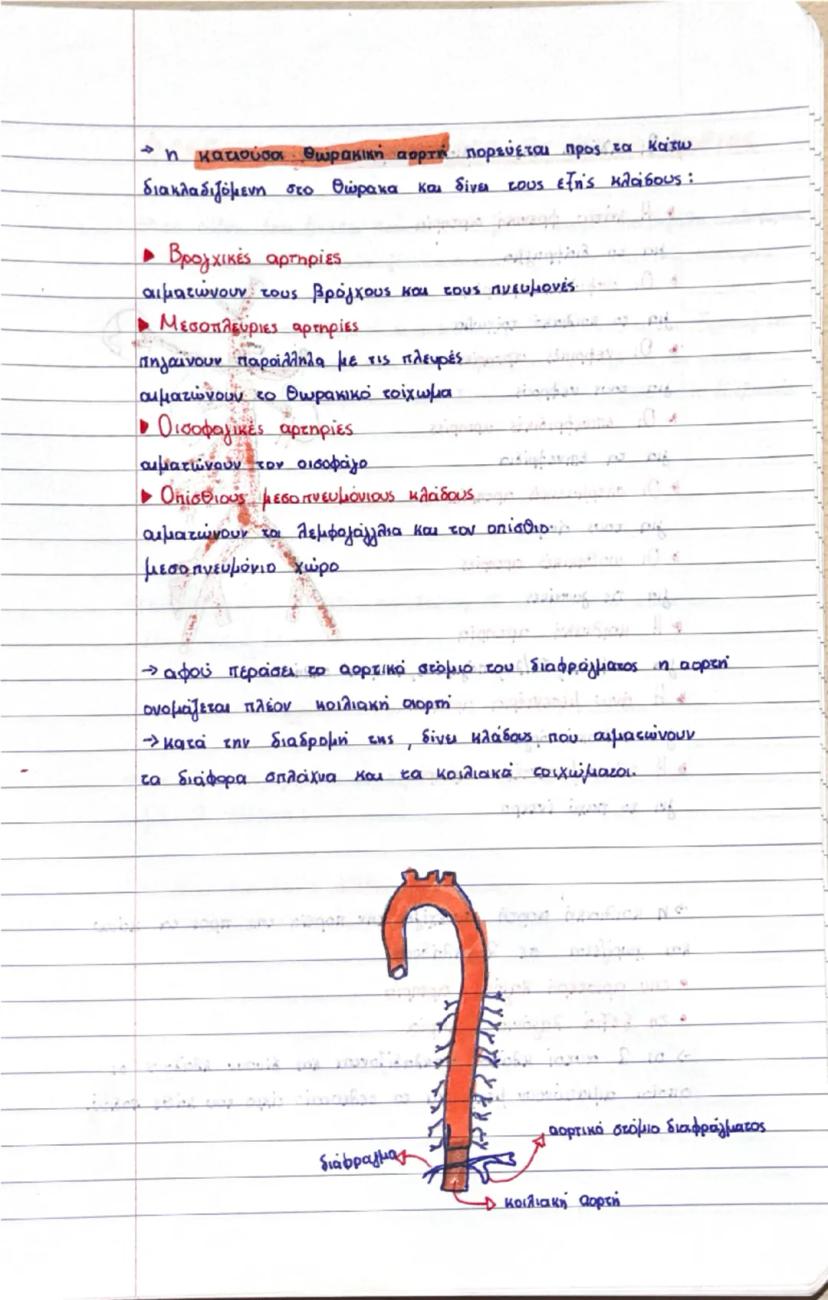 → η κατιούσα θωρακική αορτή πορεύεται προς τα κάτω
διακλαδιζόμενη στο θώρακα και δίνει τους εξής κλάδους:
▶ Βρογχικές αρτηρίες
αιματώνουν τους βρόγχους και τους πνευμονές
▶ Μεσοπλεύριες αρτηρίες
πηγαίνουν παράλληλα με τις πλευρές
αιματώνουν το θωρακικό τοίχωμα
▶ Οισοφαγικές αρτηρίες
αιματώνουν τον οισοφάγο
▶ Οπίσθιους μεσοπνευμόνιους κλάδους
αιματώνουν τα λεμφογάγγλια και τον οπίσθιο
μεσοπνευμόνιο χώρο
→ αφού περάσει το αορτικό στόμιο του διαφράγματος η αορτή
ονομάζεται πλέον κοιλιακή αορτή
→ κατά την διαδρομή της, δίνει κλάδους που αιματώνουν
τα διάφορα σπλάχνα και τα κοιλιακά τοιχώματα.
αορτικό στόμιο διαφράγματος
διάφραγμα
κοιλιακή αορτή